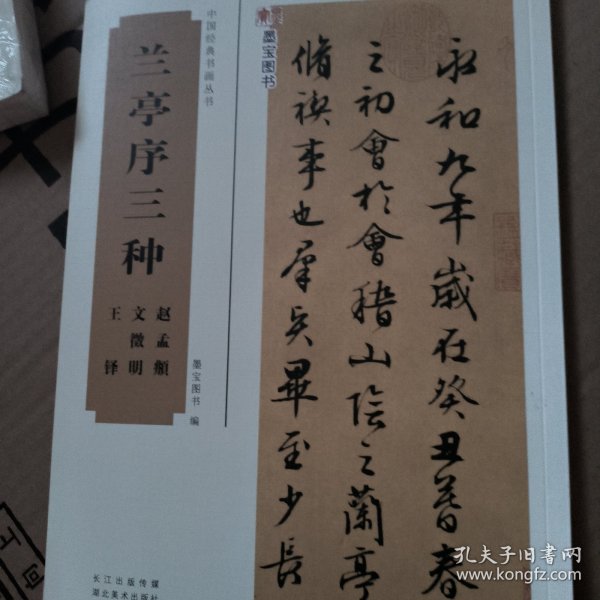 中国经典书画丛书
兰亭序三种
赵孟頫
文徵明
王铎
墨宝图书 编
长江出版传媒
湖北美术出版社
墨宝图书
永和九年歲在癸丑暮春
之初會於會稽山陰之蘭亭
脩禊事也羣賢畢至少長
孔夫子旧书网
www.kongfz.com